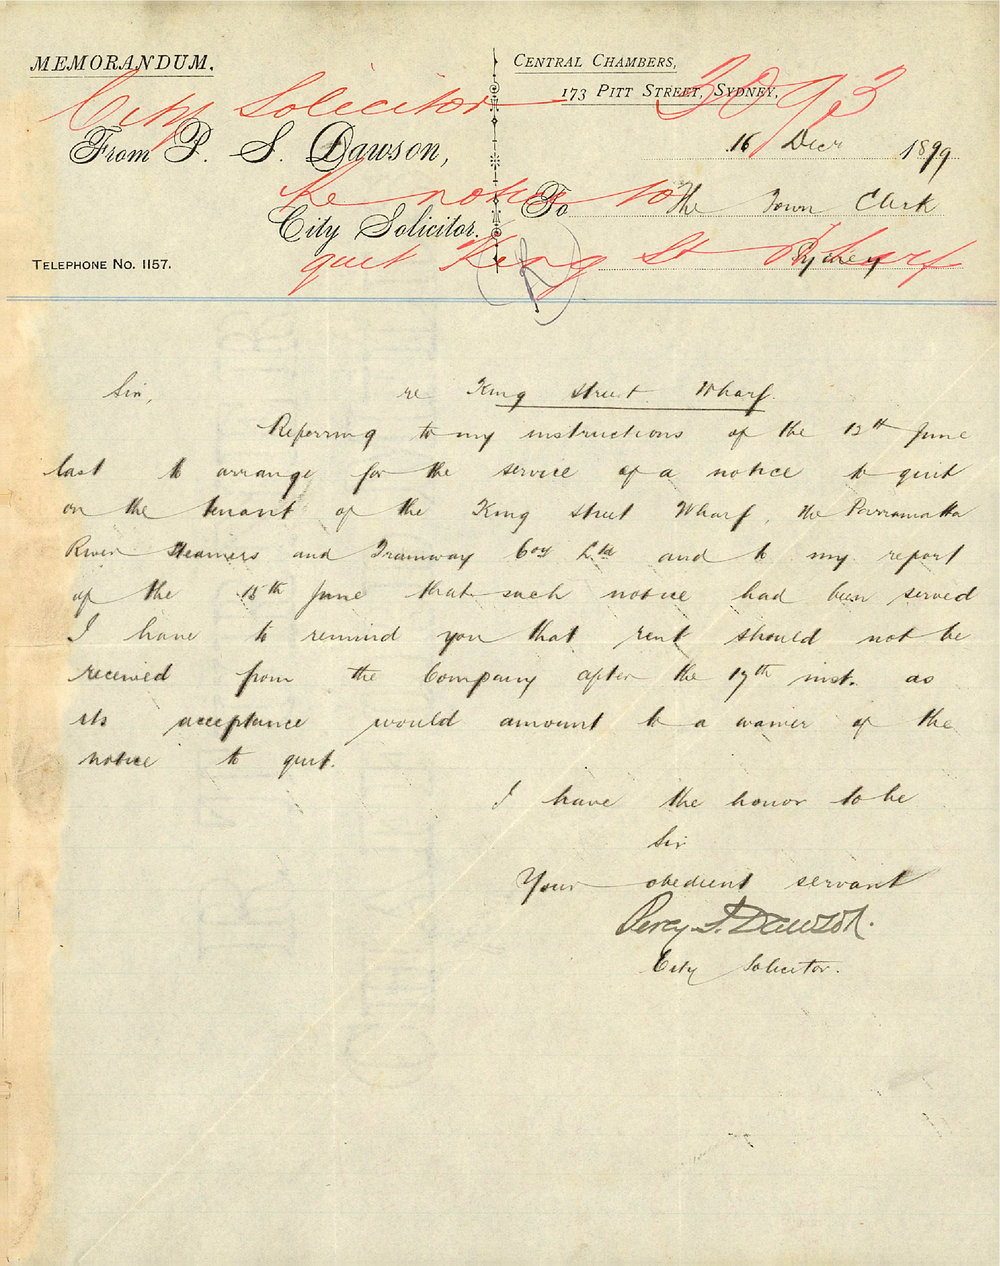 MEMORANDUM.
CENTRAL CHAMBERS,
173 PITT STREET, SYDNEY,
City Solicitor
From P. S. Dawson,
16 Decr 1899
re notice to
To The Town Clerk
City Solicitor.
quit King St Wharf
Sydney
TELEPHONE NO. 1157.
Sir, re King Street Wharf.
Referring to my instructions of the 12th June
last to arrange for the service of a notice to quit
on the tenant of the King Street Wharf, the Parramatta
River Steamers and Tramway Coy Ltd and to my report
of the 15th June that such notice had been served
I have to remind you that rent should not be
received from the Company after the 17th inst. as
its acceptance would amount to a waiver of the
notice to quit.
I have the honor to be
Sir
Your obedient servant
Percy S. Dawson.
City Solicitor.